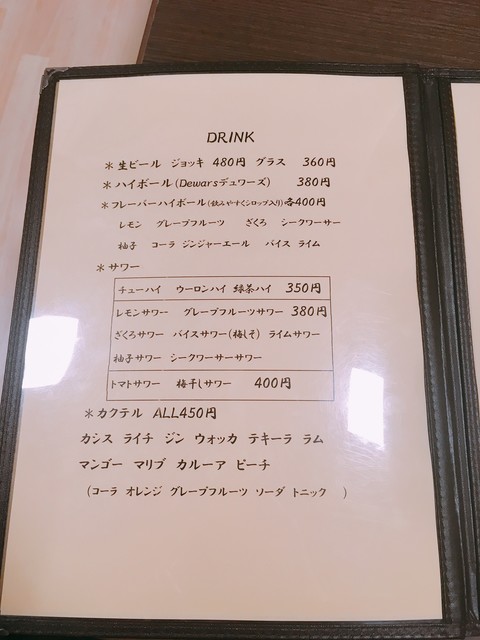 DRINK
＊生ビール ジョッキ 480円 グラス 360円
＊ハイボール(Dewarsデュワーズ) 380円
＊フレーバーハイボール(飲みやすくシロップ入り)各400円
レモン グレープフルーツ ざくろ シークワーサー
柚子 コーラ ジンジャーエール バイス ライム
＊サワー
チューハイ ウーロンハイ 緑茶ハイ 350円
レモンサワー グレープフルーツサワー 380円
ざくろサワー バイスサワー(梅しそ) ライムサワー
柚子サワー シークワーサーサワー
トマトサワー 梅干しサワー 400円
＊カクテル ALL450円
カシス ライチ ジン ウォッカ テキーラ ラム
マンゴー マリブ カルーア ピーチ
(コーラ オレンジ グレープフルーツ ソーダ トニック )